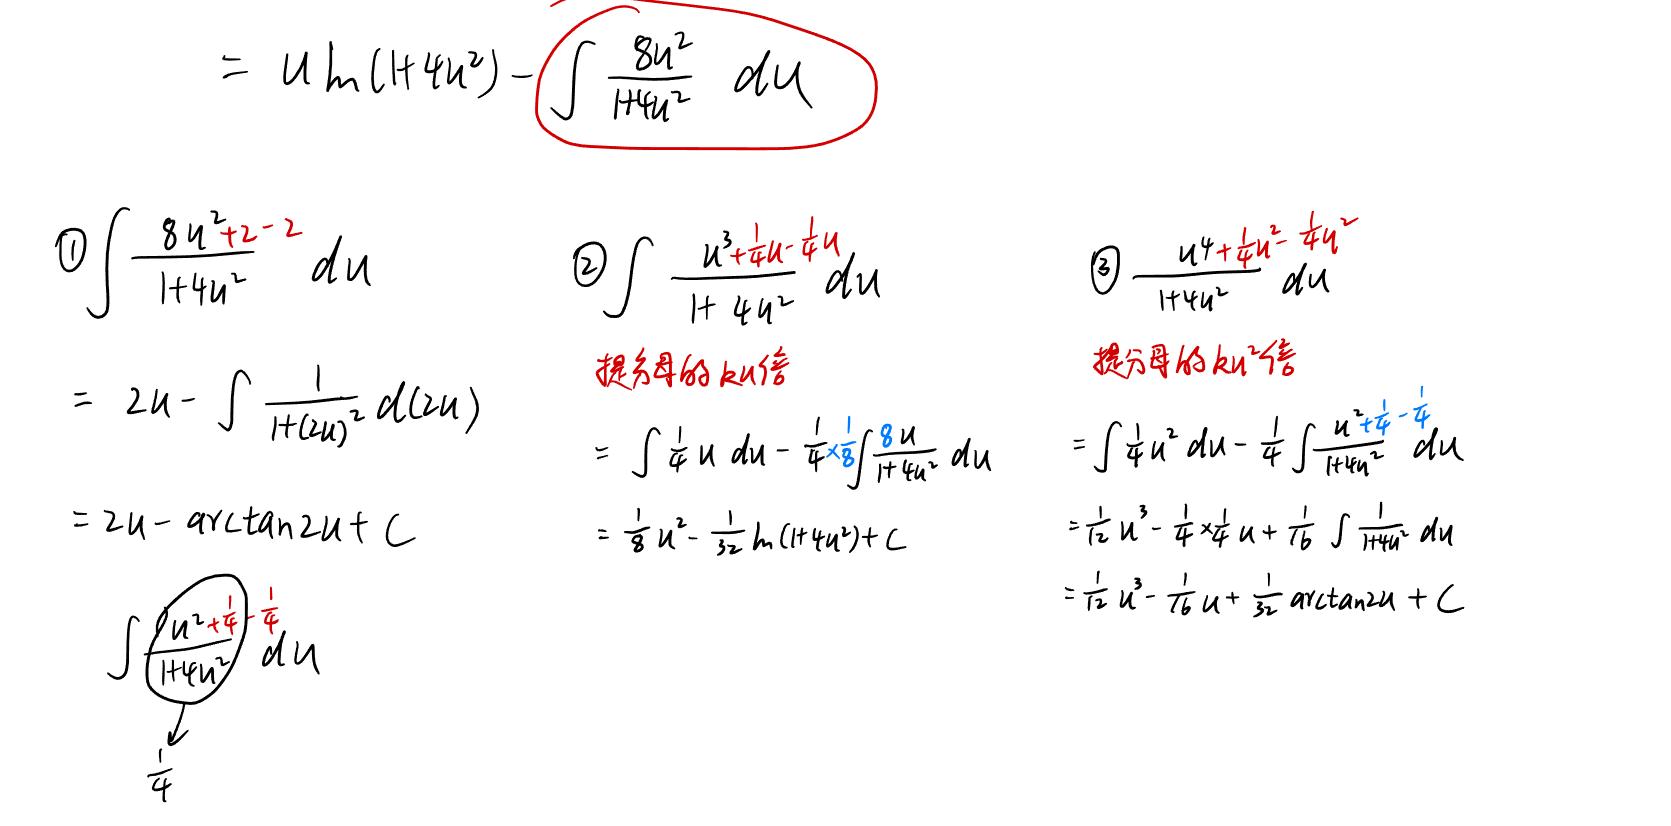 = u ln(1+4u²) - ∫ 8u²/(1+4u²) du
① ∫ (8u²+2-2)/(1+4u²) du
= 2u - ∫ 1/(1+(2u)²) d(2u)
= 2u - arctan2u + C
∫ (u²+1/4-1/4)/(1+4u²) du
1/4
② ∫ (u³+1/4u-1/4u)/(1+4u²) du
提分母的ku倍
= ∫ 1/4 u du - 1/4×1/8 ∫ 8u/(1+4u²) du
= 1/8 u² - 1/32 ln(1+4u²)+C
③ (u⁴+1/4u²-1/4u²)/(1+4u²) du
提分母的ku²倍
= ∫ 1/4 u² du - 1/4 ∫ (u²+1/4-1/4)/(1+4u²) du
= 1/12 u³ - 1/4×1/4 u + 1/16 ∫ 1/(1+4u²) du
= 1/12 u³ - 1/16 u + 1/32 arctan2u + C